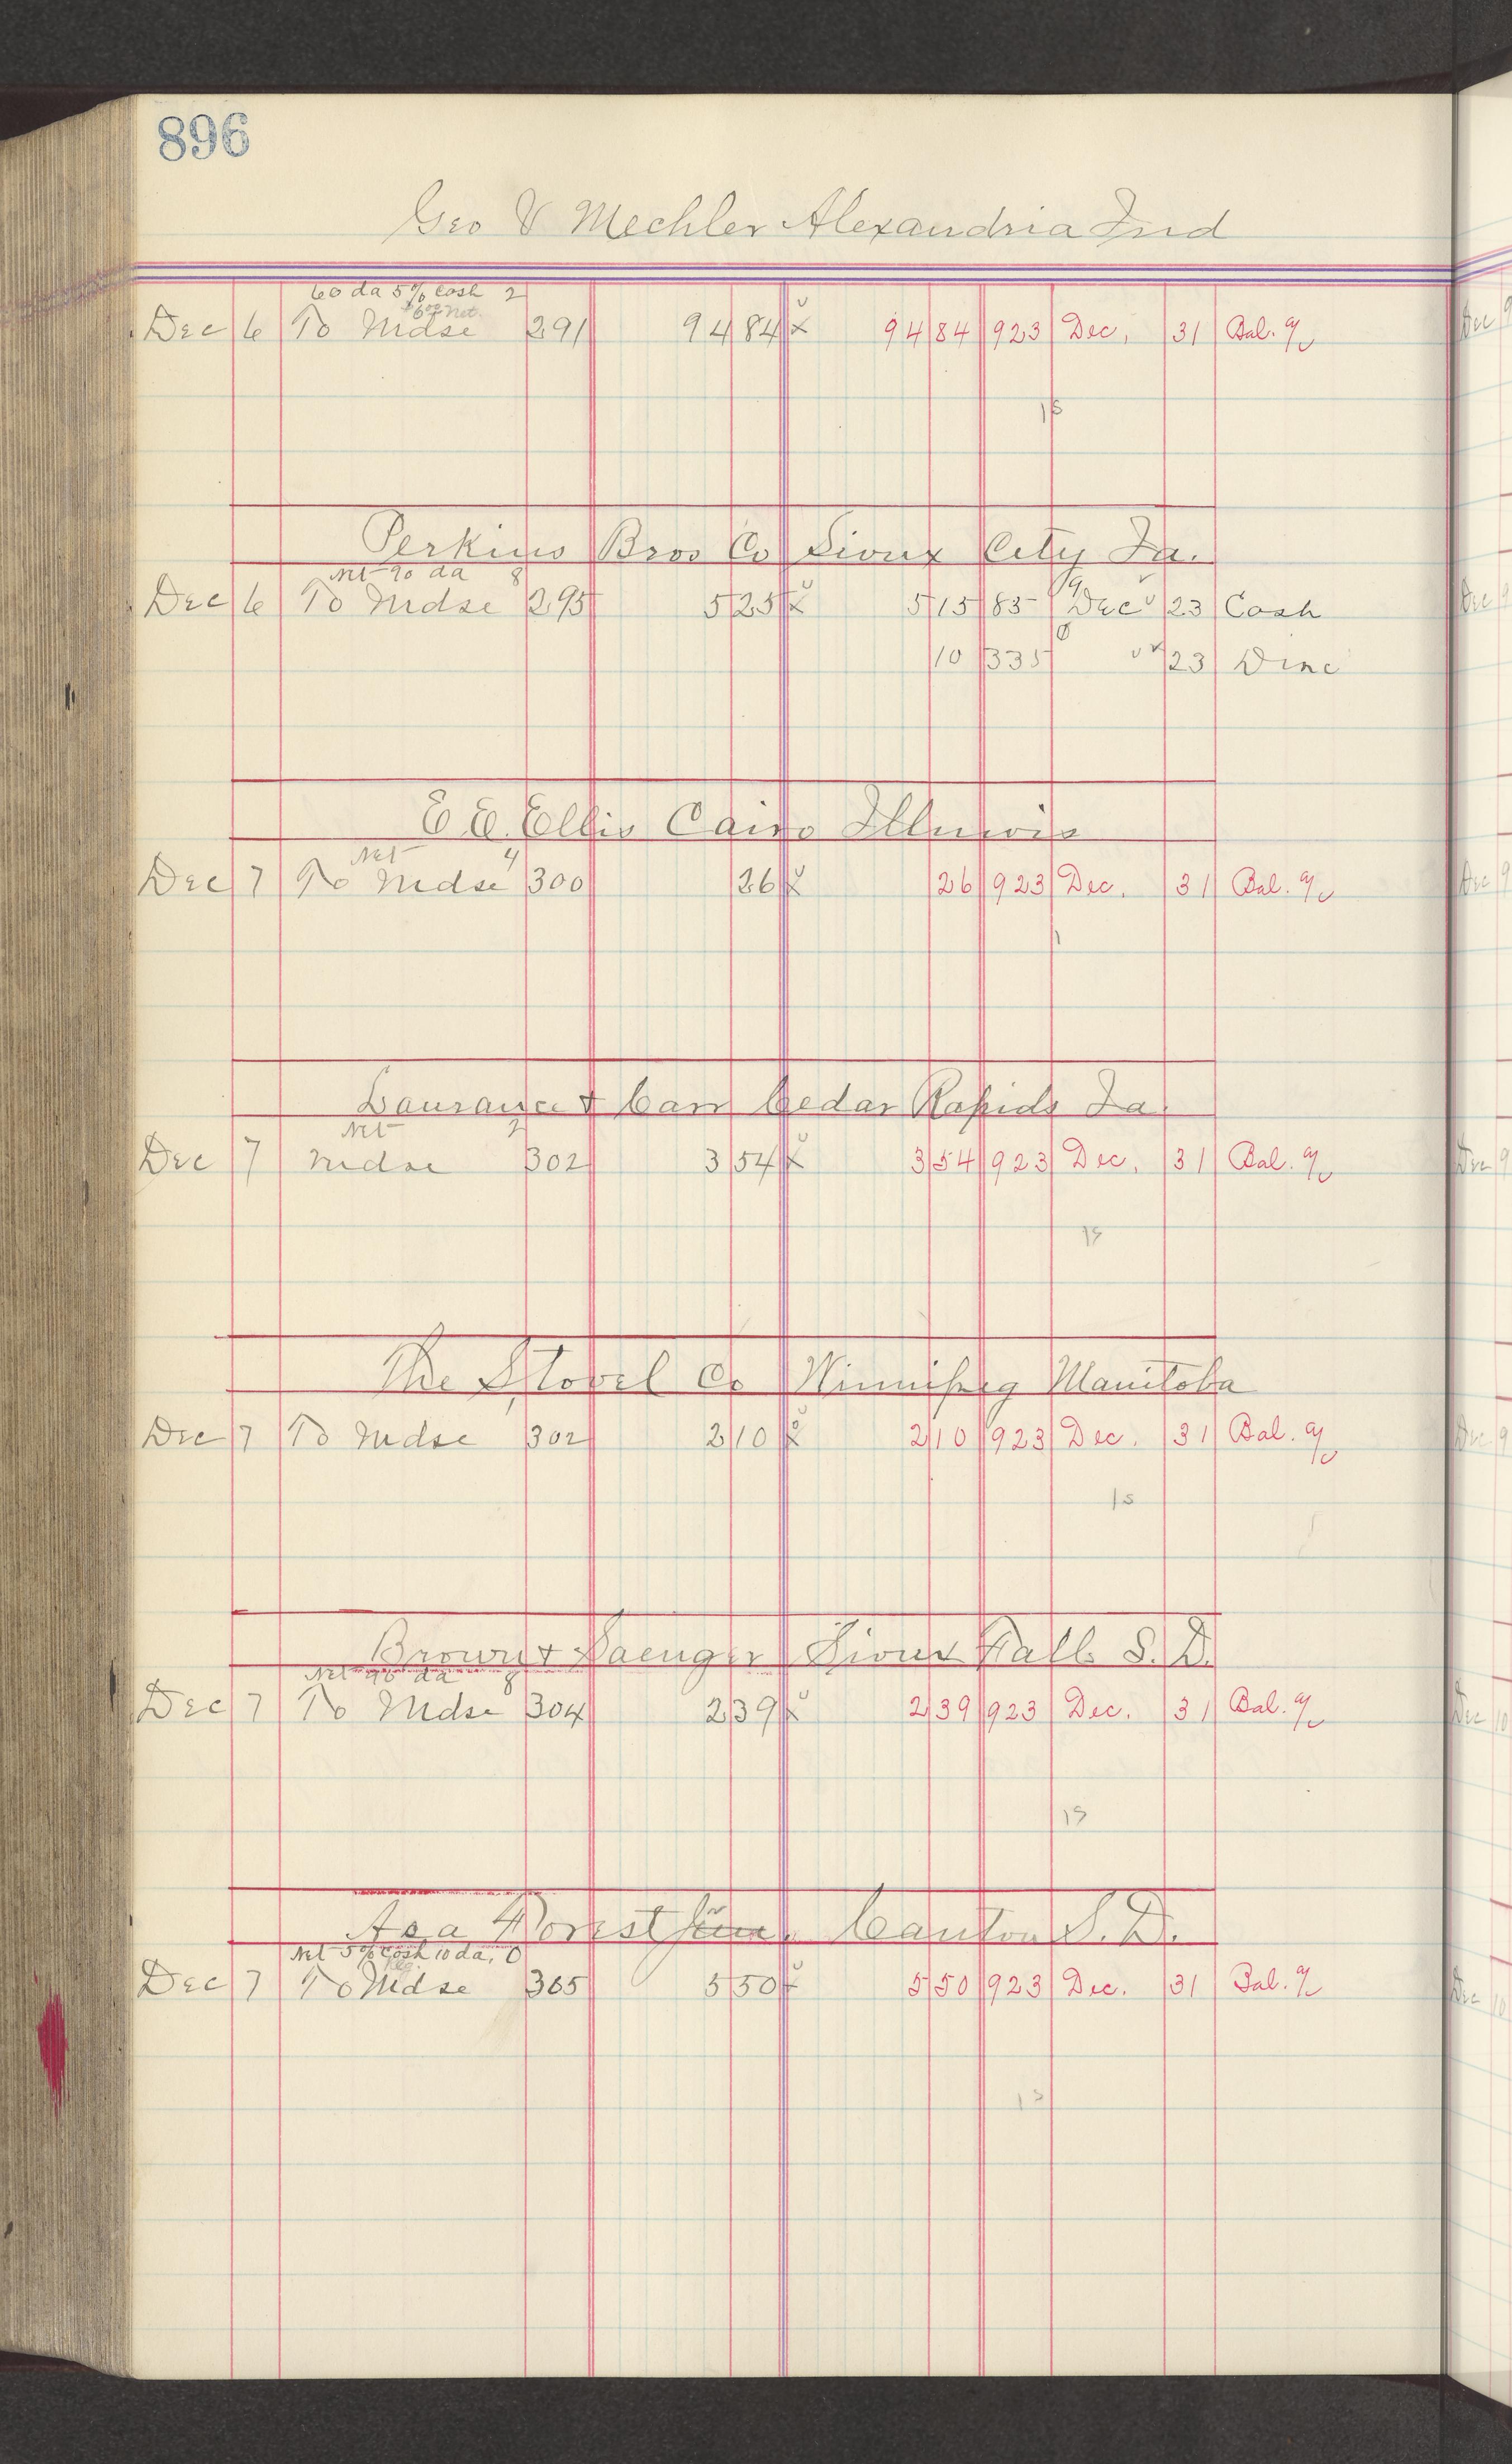 896
Geo V Mechler Alexandria Ind
60 da 5% cash 2
Net
Dec 6 To Mdse 291 94 84 x 94 84 923 Dec. 31 Bal. a/c
15
Perkins Bros Co Sioux City Ia.
Net 90 da 8
Dec 6 To Mdse 295 5 25 x 5 15 85 Dec 23 Cash
10 335 23 Disc
E. E. Ellis Cairo Illinois
Net 4
Dec 7 To Mdse 300 26 x 26 923 Dec. 31 Bal. a/c
1
Laurance & Carr Cedar Rapids Ia.
Net 2
Dec 7 Mdse 302 3 54 x 3 54 923 Dec. 31 Bal. a/c
15
The Stovel Co Winnipeg Manitoba
Dec 7 To Mdse 302 2 10 x 2 10 923 Dec. 31 Bal. a/c
15
Brown & Saenger Sioux Falls S. D.
Net 90 da 8
Dec 7 To Mdse 304 2 39 x 2 39 923 Dec. 31 Bal. a/c
15
Asa Forest Canton S. D.
Net 5% cash 10 da. 0
Dec 7 To Mdse 305 5 50 x 5 50 923 Dec. 31 Bal. a/c
13